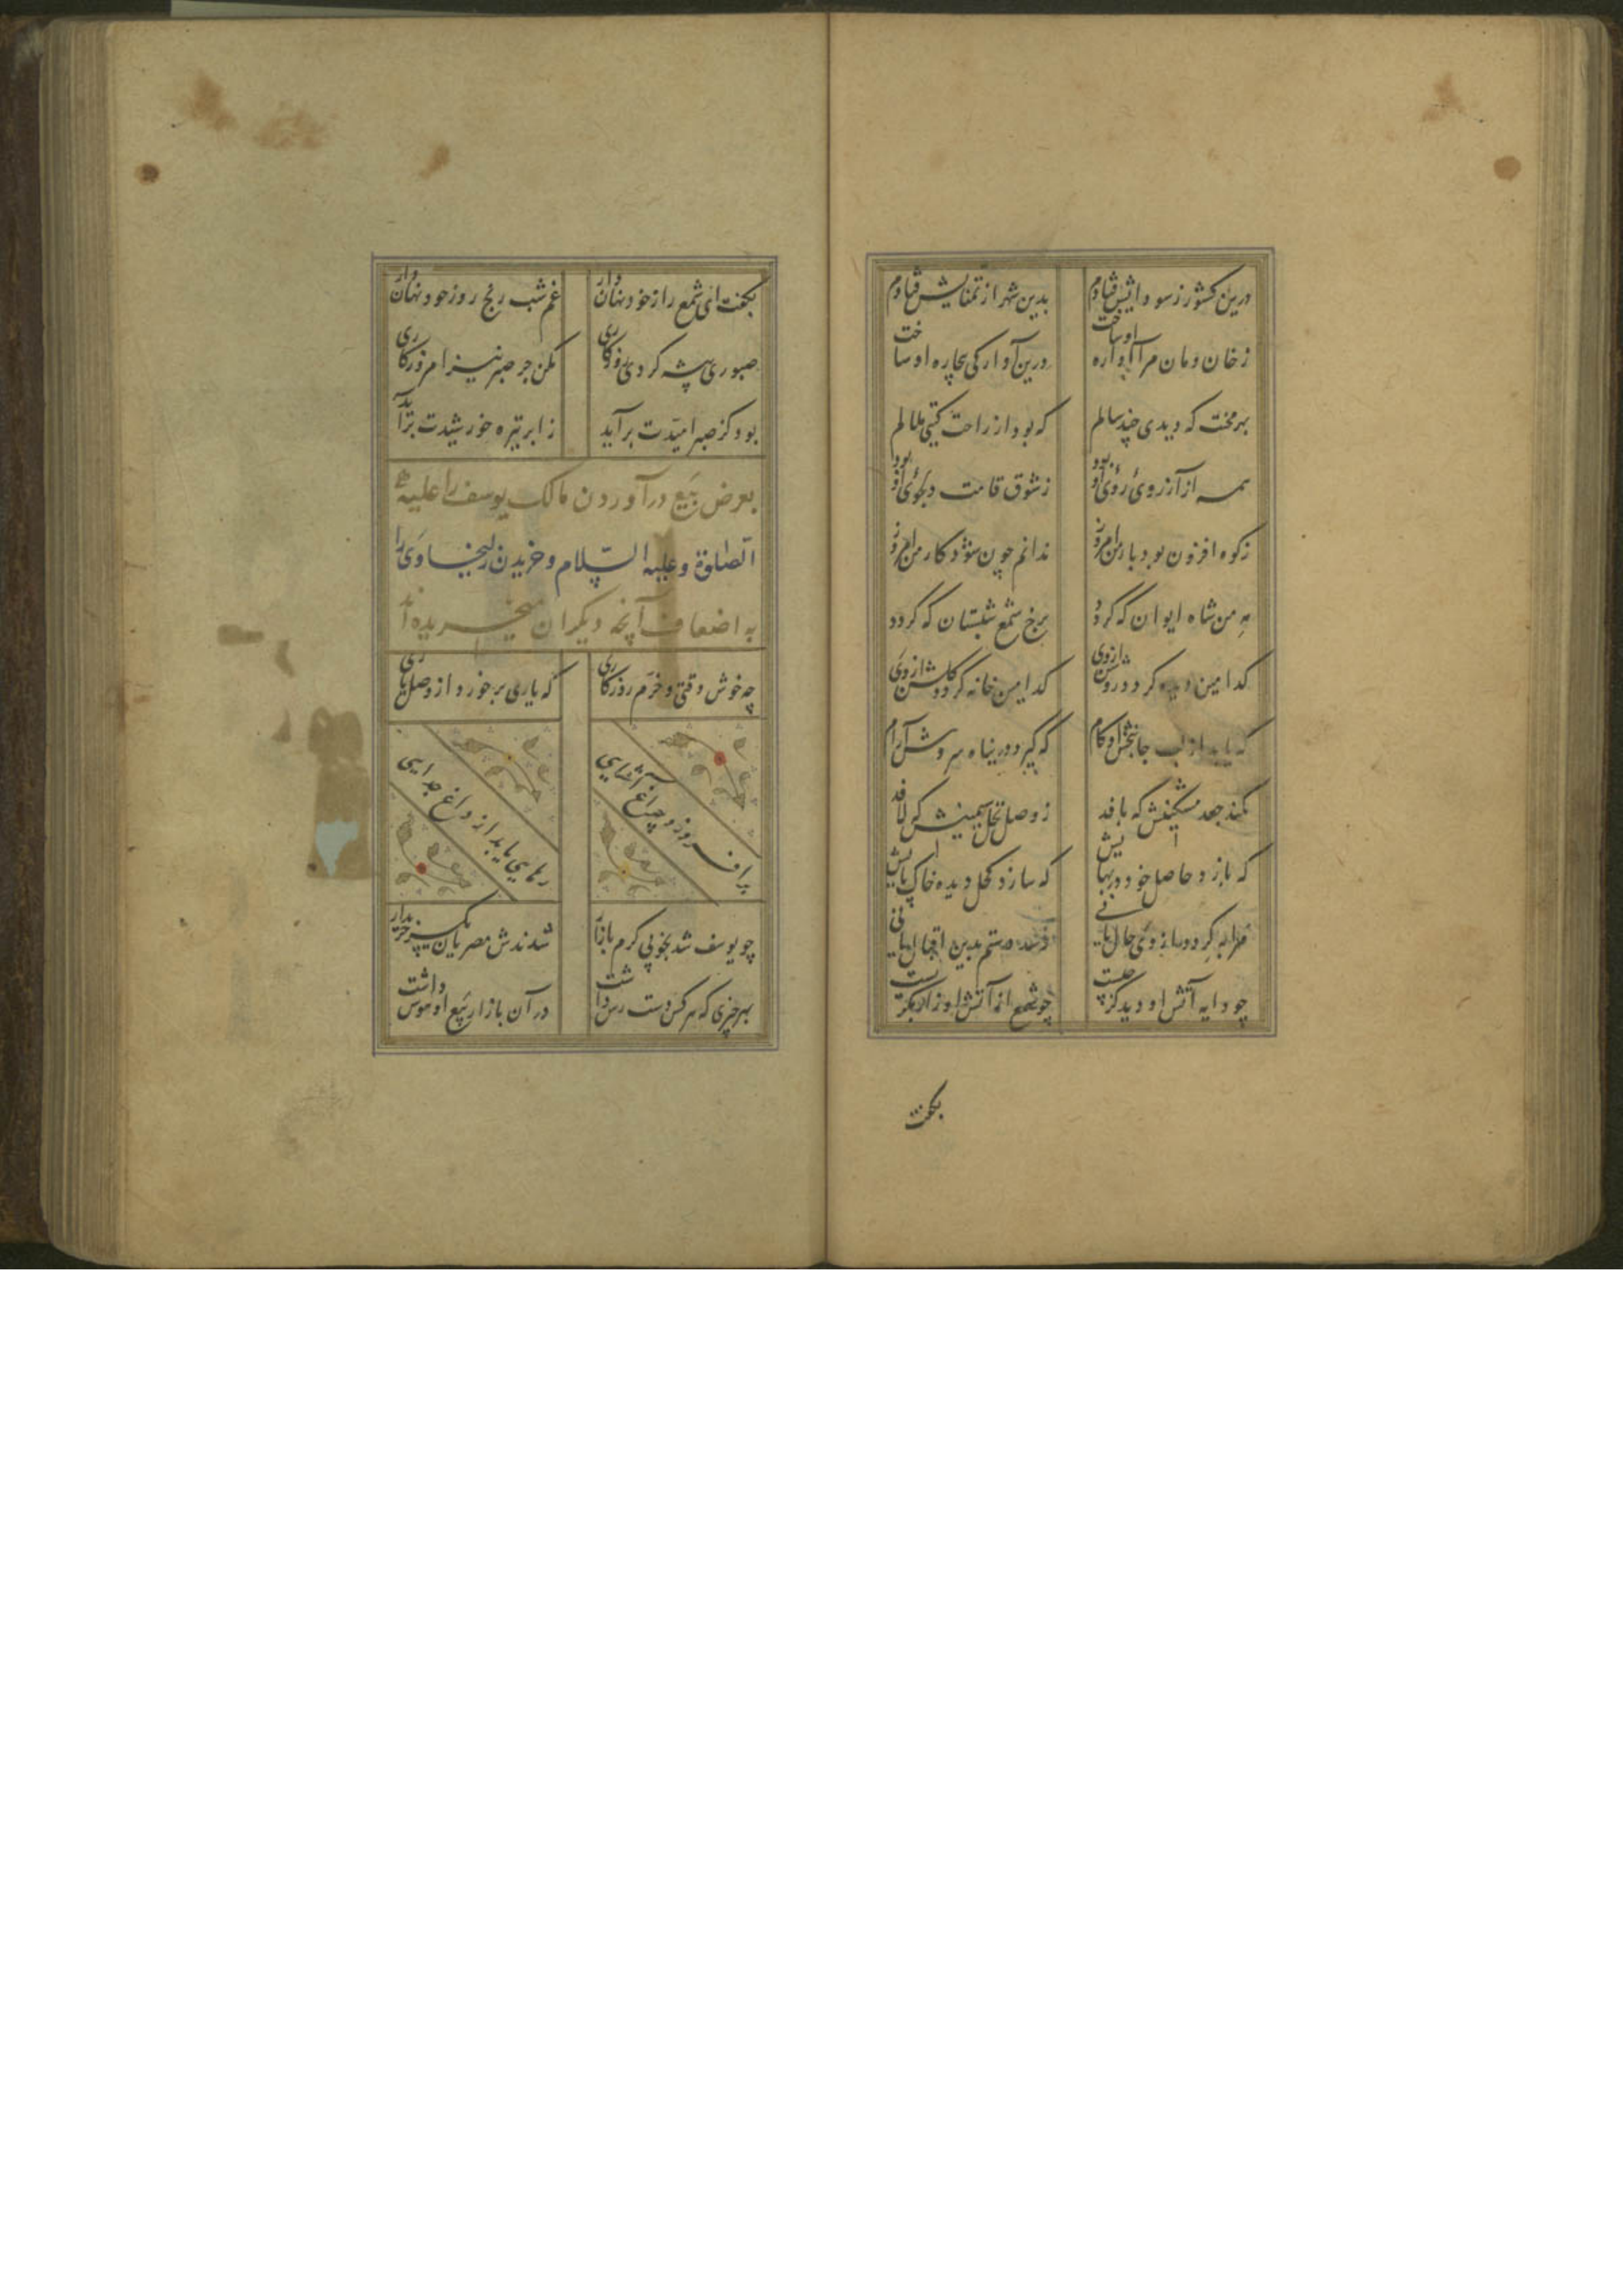 درین کشور ز سودایش فتادم
بدین شهر از تمنایش فتادم
ز خان و مان مرا آواره او ساخت
درین آوارکی بیچاره او ساخت
بهر محنت که دیدی چند سالم
که بود از راحت کیتی ملالم
همه از آرزوی روی او بود
ز شوق قامت دلجوی او بود
ز کوه افزون بود بار من امروز
ندانم چون شود کار من امروز
مه من شاه ایوان که کردد
برخ شمع شبستان که کردد
کدامین دیده کردد روشن از وی
کدامین خانه کردد کلشن از وی
که یابد از لب جانبخش او کام
که کیرد در پناه سروش آرام
کمند جعد مشکینش که بافد
ز وصل نخل سیمینش که لافد
که بازد حاصل خود در بهایش
که سازد کحل دیده خاک پایش
چو دایه آتش او دید کز چیست
چو شمع از آتش او زار بکریست
بکفت
بکفت ای شمع راز خود نهان دار
غم شب رنج روز خود نهان دار
صبوری پیشه کردی روزکاری
مکن جز صبر نیز امروز کاری
بود کز صبر امیدت برآید
ز ابر تیره خورشیدت برآید
بعرض بیع درآوردن مالک یوسف را علیه
الصلوة و علیه السلام و خریدن زلیخا وی را
به اضعاف آنچه دیکران میخریده اند
چه خوش وقتی و خرم روزکاری
که یاری برخورد از وصل یاری
برافروزد چراغ آشنایی
رهایی یابد از داغ جدایی
چو یوسف شد بخوبی کرم بازار
شدندش مصریان یکسر خریدار
بهر چیزی که هر کس دست رس داشت
در آن بازار بیع او هوس داشت